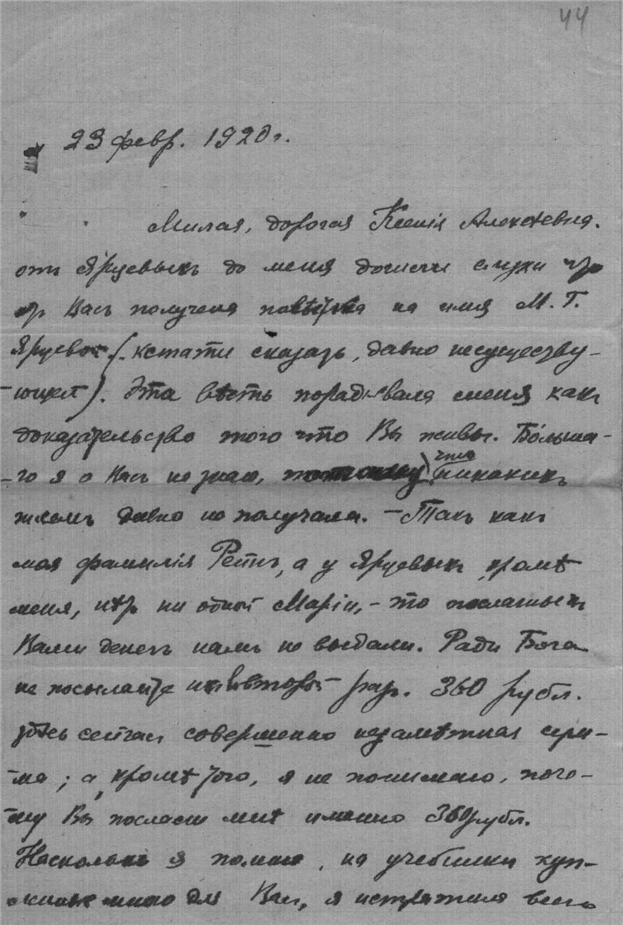 44
23 февр. 1920 г.
Милая, дорогая Ксенія Алексѣевна.
отъ Яруевыхъ до меня дошли слухи что
отъ Васъ получена повѣстка на имя М. Г.
Яруевой (кстати сказать, давно несуществу-
-ющей). Эта вѣсть порадовала меня какъ
доказательство того что Вы живы. Больша-
-го я о Васъ не знаю, потому что никакихъ
писемъ давно не получала. – Такъ какъ
моя фамилія Ретнъ, а у Яруевыхъ, кромѣ
меня, нѣтъ ни одной Маріи, – то посланныхъ
Вами денегъ намъ не выдали. Ради Бога
не посылайте ихъ второй разъ. 360 рубл.
здѣсь сейчасъ совершенно незамѣтная сум-
-ма; а, кромѣ того, я не понимаю, поче-
-му Вы послали мнѣ именно 360 рубл.
Насколько я помню, на учебники куп-
-ленные мною для Васъ, я истратила всего